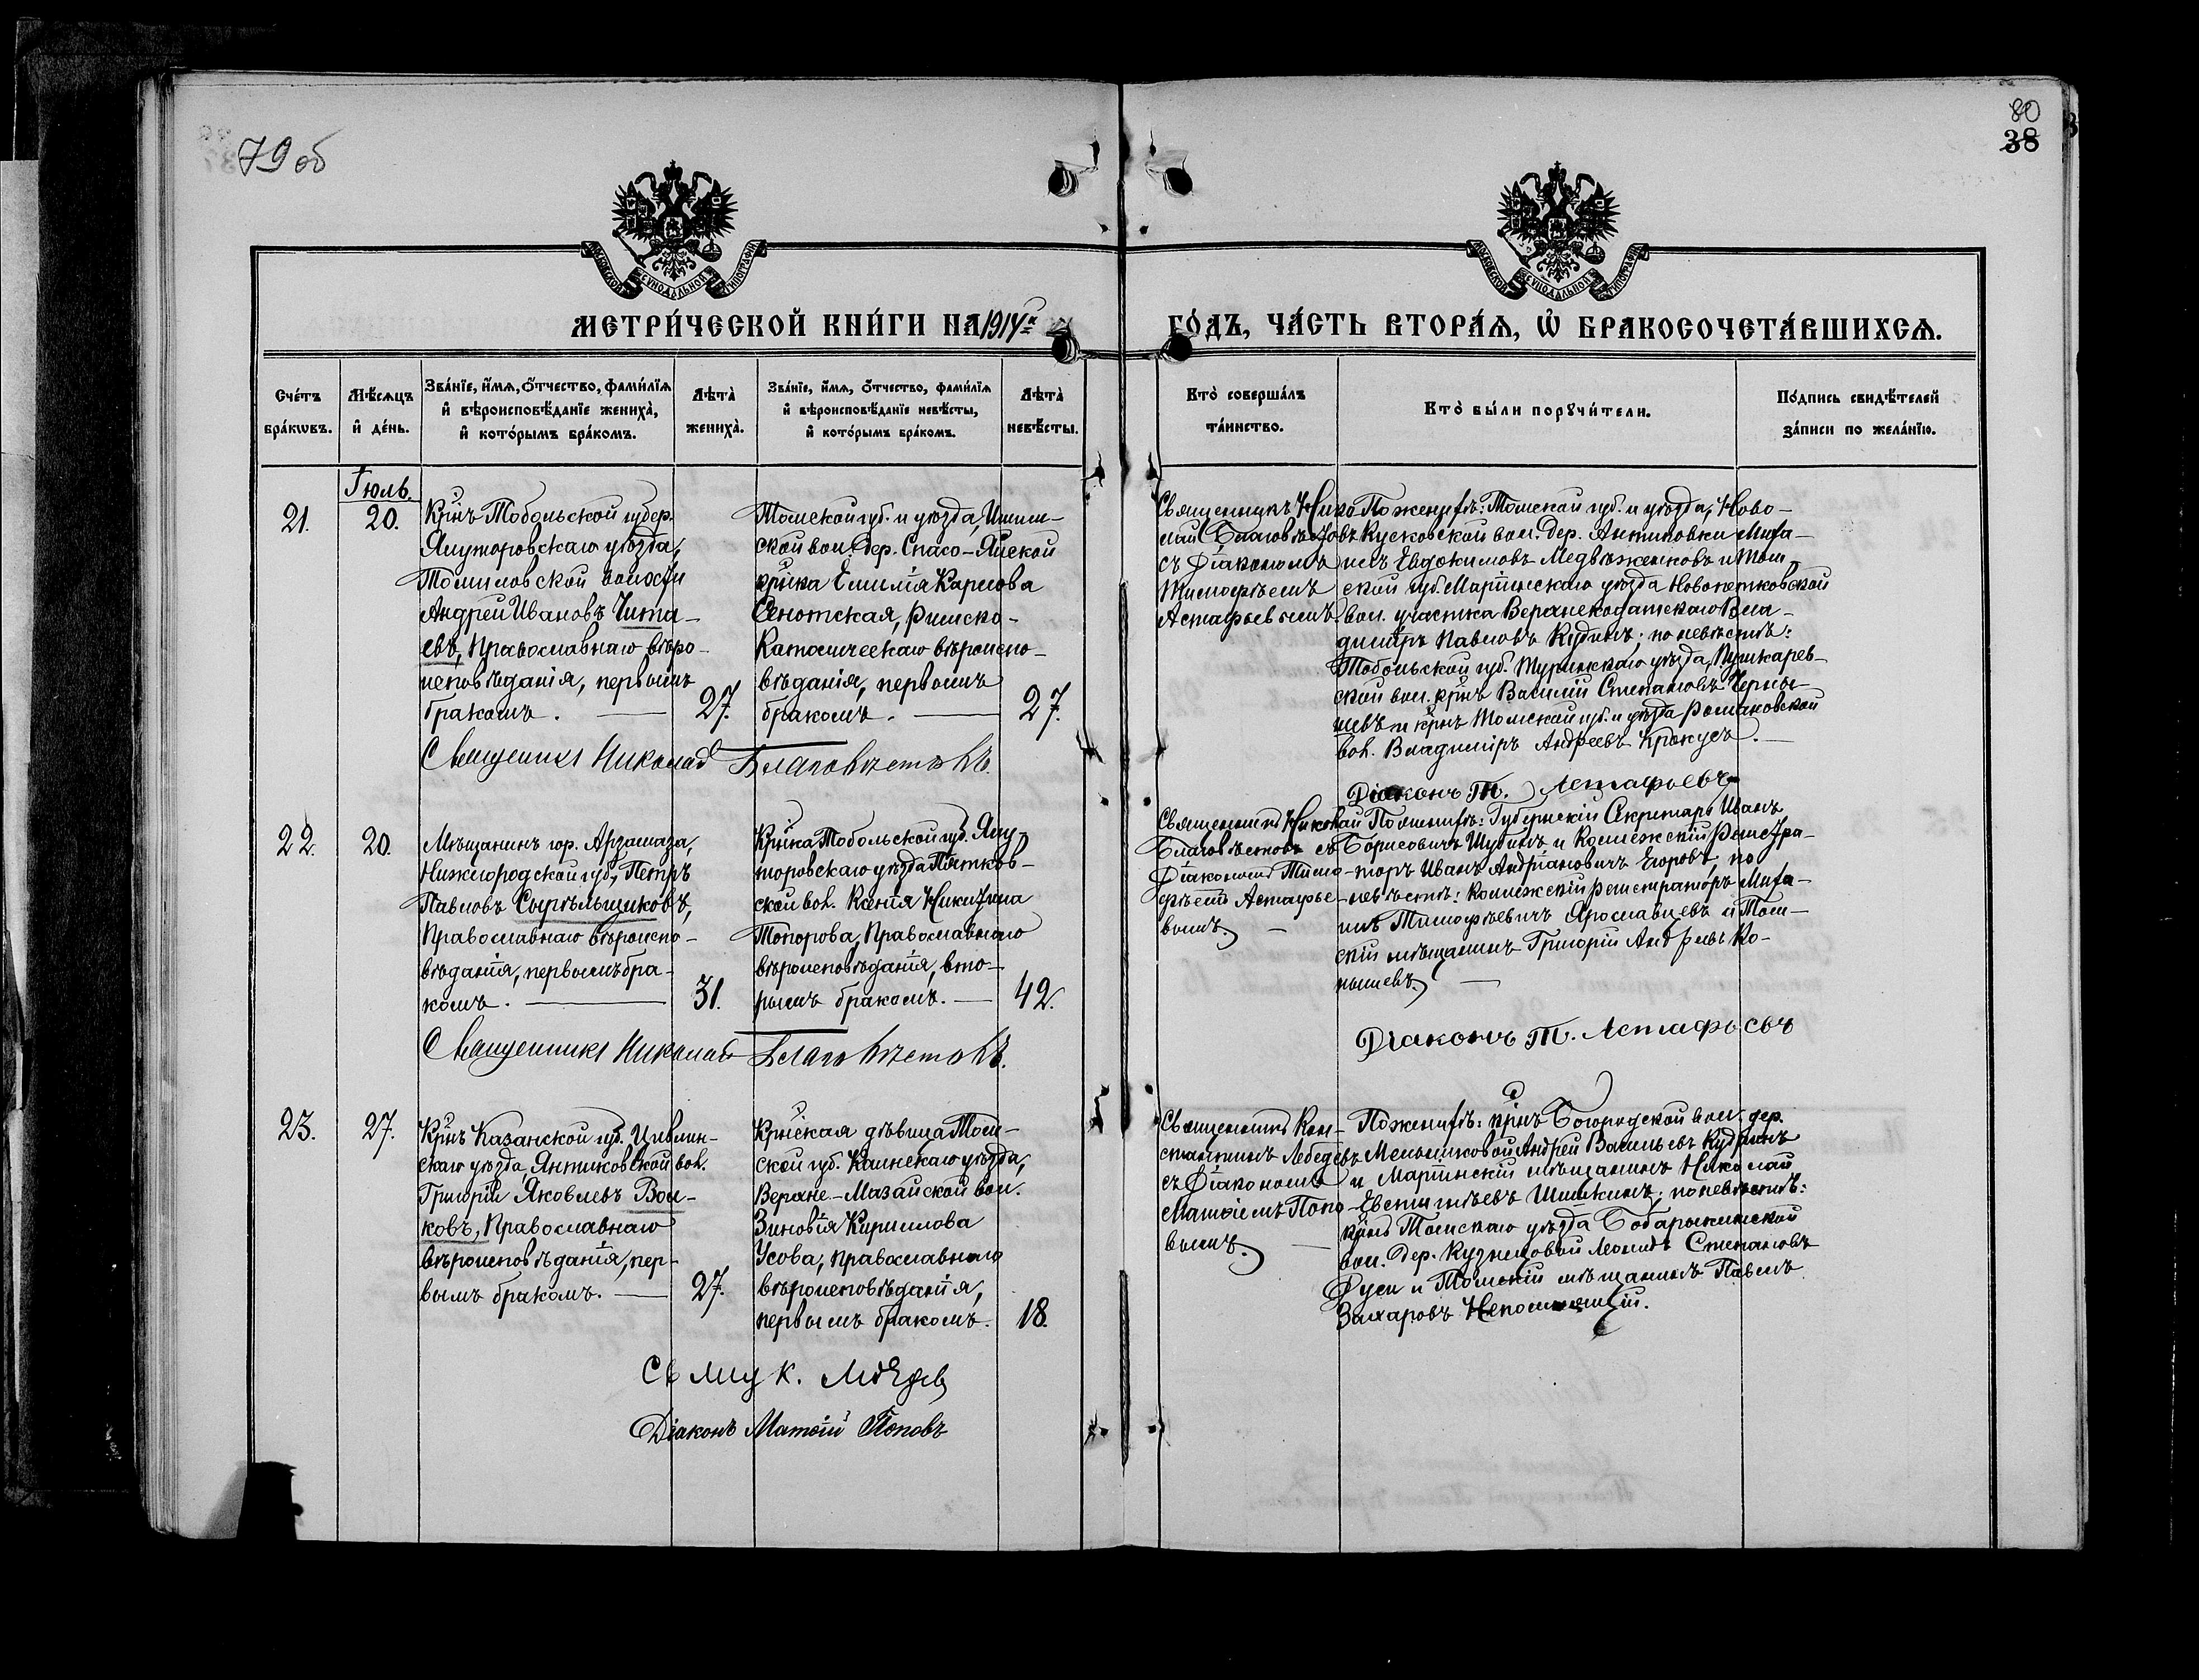 79 об
80
38
МЕТРИ́ЧЕСКОЙ КНИ́ГИ НА 1914й
ГО́ДЪ, ЧА́СТЬ ВТОРА́Ѧ, Ѽ БРАКОСОЧЕТА́ВШИХСѦ.
Сче́тъ
бра́кѡвъ.
Мѣ́сѧцъ
и҆ де́нь.
Зва́нїе, и҆́мѧ, ѻ҆́тчество, фами́лїѧ
и҆ вѣроисповѣ́данїе жениха̀,
и҆ кото́рымъ бра́комъ.
Лѣта̀
жениха̀.
Зва́нїе, и҆́мѧ, ѻ҆́тчество, фами́лїѧ
и҆ вѣроисповѣ́данїе невѣ́сты,
и҆ кото́рымъ бра́комъ.
Лѣта̀
невѣ́сты.
Кто̀ соверша́лъ
та́инство.
Кто̀ бы́ли порꙋчи́тели.
По́дпись свидѣ́телей
за́писи по жела́нїю.
Іюль.
21.
20.
Крнъ Тобольской губер.
Ялуторовскаго уѣзда,
Томиловской волости
Андрей Ивановъ Чита-
евъ, Православнаго вѣро-
исповѣданія, первымъ
бракомъ. —
27.
Томской губ. и уѣзда, Ишим-
ской вол. дер. Спасо-Яйской
крнка Емилія Карлова
Сенотская, Римско-
Католическаго вѣроиспо-
вѣданія, первымъ
бракомъ. —
27.
Священникъ Николай Благовѣстовъ.
Священникъ Нико
лай Благовѣстовъ
съ Діакономъ
Тимоѳеемъ
Астафьевымъ
По женихѣ: Томской губ. и уѣзда, Ново-
Кусковской вол. дер. Антиповки Миха-
илъ Евдокимовъ Медвѣжонковъ и Том
ской губ. Маріинскаго уѣзда Новопетковской
вол. участка Верхнекодатскаго Вла-
диміръ Павловъ Кудинъ; по невѣстѣ:
Тобольской губ. Туринскаго уѣзда, Пушкарев-
ской вол. крнъ Василій Степановъ Черны-
шевъ и крнъ Томской губ. и уѣзда Романовской
вол. Владиміръ Андреевъ Крокусъ. —
Діаконъ Т. Астафьевъ
22.
20.
Мѣщанинъ гор. Арзамаза,
Нижегородской губ., Петръ
Павловъ Сыгѣльщиковъ,
Православнаго вѣроиспо-
вѣданія, первымъ бра-
комъ. —
31.
Крнка Тобольской губ. Ялу-
торовскаго уѣзда Пятков-
ской вол. Ксенія Никитина
Топорова, Православнаго
вѣроисповѣданія, вто-
рымъ бракомъ. —
42.
Священникъ Николай Благовѣстовъ.
Священникъ Николай
Благовѣстовъ съ
Діакономъ Тимо-
ѳеемъ Астафье-
вымъ. —
По женихѣ: Губернскій Секретарь Иванъ
Борисовичъ Шубинъ и Коллежскій Регистра-
торъ Иванъ Андріановичъ Егоровъ, по
невѣстѣ: Коллежскій регистраторъ Миха-
илъ Тимоѳеевичъ Ярославцевъ и Том-
скій мѣщанинъ Григорій Андреевъ Ко-
пышевъ. —
Діаконъ Т. Астафьевъ
23.
27.
Крнъ Казанской губ. Цивлин-
скаго уѣзда Янтиковской вол.
Григорій Яковлевъ Вол-
ковъ, Православнаго
вѣроисповѣданія, пер-
вымъ бракомъ. —
27.
Крнская дѣвица Том-
ской губ. Каинскаго уѣзда,
Верхне-Мазайской вол.
Зиновія Кириллова
Усова, православнаго
вѣроисповѣданія,
первымъ бракомъ.
18.
Свящ К. Лебедев
Діаконъ Матѳій Поповъ
Священникъ Кон-
стантинъ Лебедевъ
съ Діакономъ
Матѳіемъ Попо-
вымъ. —
По женихѣ: крнъ Богородской вол. дер.
Мельниковой Андрей Васильевъ Кудринъ
и Маріинскій мѣщанинъ Николай
Евстигнѣевъ Шишкинъ; по невѣстѣ:
крнъ Томскаго уѣзда Бобарыкинской
вол. дер. Кузнецовой Леонидъ Степановъ
Дуси и Томскій мѣщанинъ Павелъ
Захаровъ Непомнящій.